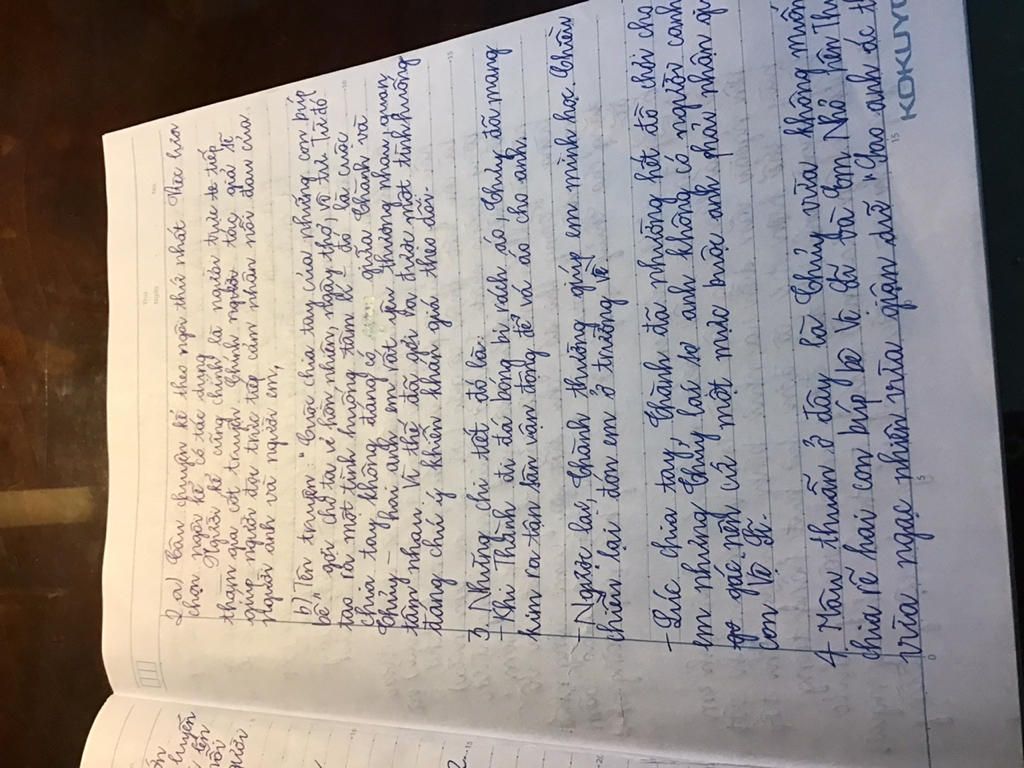 2.a) Câu chuyện kể theo ngôi thứ nhất. Việc lựa
chọn ngôi kể có tác dụng
Người kể cũng chính là người trực tiếp
tham gia cốt truyện. Chính người tác giả sẽ
giúp người đọc trực tiếp cảm nhân nỗi đau của
người anh và người em,
b) Tên truyện: "Cuộc chia tay của những con búp
bê" gợi cho ta về hồn nhiên, ngây thơ, vô tư. Từ đó
tạo ra một tình huống tâm lí - đó là cuộc
chia tay không đáng có giữa Thành và
Thủy - hai anh em rất yêu thương nhau, quan
tâm nhau. Vì thế đã gợi ra trước một tình huống
tăng chú ý khiến khán giả theo dõi.
3. Những chi tiết đó là:
- Khi Thành đi đá bóng bị rách áo, Thủy đã mang
kim ra tận sân vận động để vá áo cho anh.
- Ngược lại, Thành thường giúp em mình học. Chiều
chiều lại đón em ở trường về
- Lúc chia tay, Thành đã nhường hết đồ chơi cho
em nhưng Thủy lại sợ anh không có người canh
gác nên cứ một mực buộc anh phải nhận
con Vệ Sĩ.
4. Mâu thuẫn ở đây là Thủy vừa không muốn
chia rẽ hai con búp bê Vệ Sĩ và Em Nhỏ nên Thủy
vừa ngạc nhiên vừa giận dữ "Sao anh ác
KOKUYO